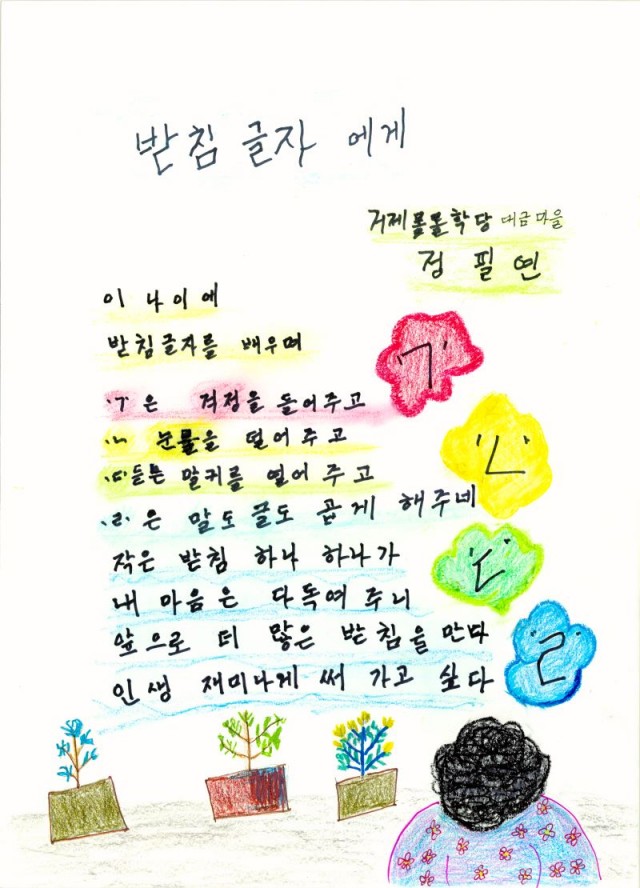 받침 글자 에게
거제몽돌학당 대금마을
정 필 연
이 나이에
받침글자를 배우며
'ㄱ'은 걱정을 들어주고
'ㄴ' 눈물을 덜어주고
'ㄷ' 듣는 말귀를 열어 주고
'ㄹ'은 말도 글도 곱게 해주네
작은 받침 하나 하나가
내 마음은 다독여 주니
앞으로 더 많은 받침을 만다
인생 재미나게 써 가고 싶다
'ㄱ'
'ㄴ'
'ㄷ'
'ㄹ'